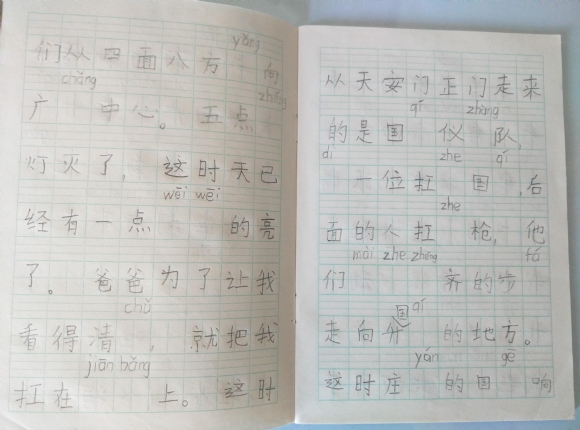 yǒng
们从四面八方 向
chǎng zhōng
广 中心。五点
灯火了，这时天已
wēi wēi
经有一点 的亮
了。爸爸为了让我
chǔ
看得清 ，就把我
jiān bǎng
扛在 上。这时
从天安门正门走来
qí zhàng
的是国 仪 队，
dǐ zhe qí
一位扛 国 ，后
zhe
面的人扛 枪，他
mài zhe zhěng fá
们 齐的步
国 qí
走向升 的地方。
yán gē
这时庄 的国 响